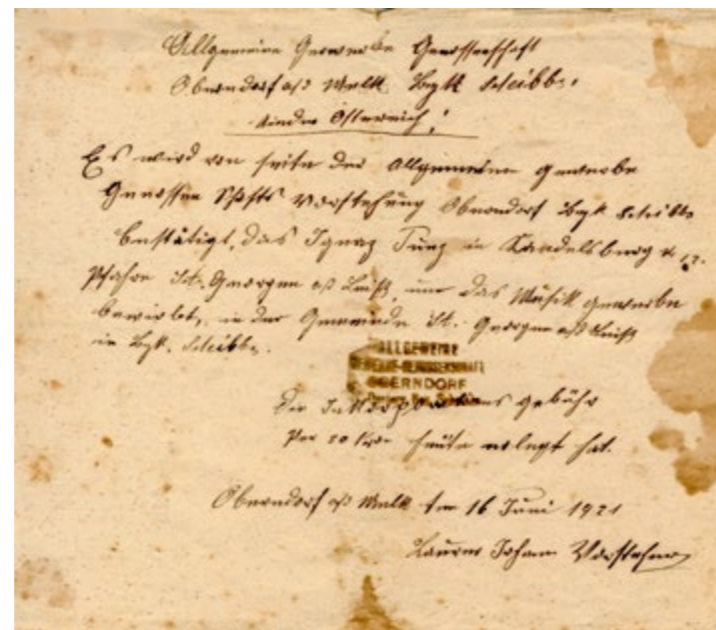 Allgemeine Gewerbe Genossenschaft
Oberndorf a/d Melk Bzk Scheibbs.
Nieder Österreich!
Es wird von seite der Allgemeinen Gewerbe
Genossen Schafts Vorstehung Oberndorf Bzk Scheibbs
bestätigt, das Ignaz in
Pfahre St. Georgen a/d Leiß, um das Musik gewerbe
bewirbt, in der Gemeinde St. Georgen a/d Leiß
in Bzk. Scheibbs.
ALLGEMEINE
GEWERBE-GENOSSENSCHAFT
OBERNDORF
Die Inkorporations gebühr
per 20 Kron heute erlegt hat.
Oberndorf a/d Melk am 16 Juni 1921
Johann Vorsteher